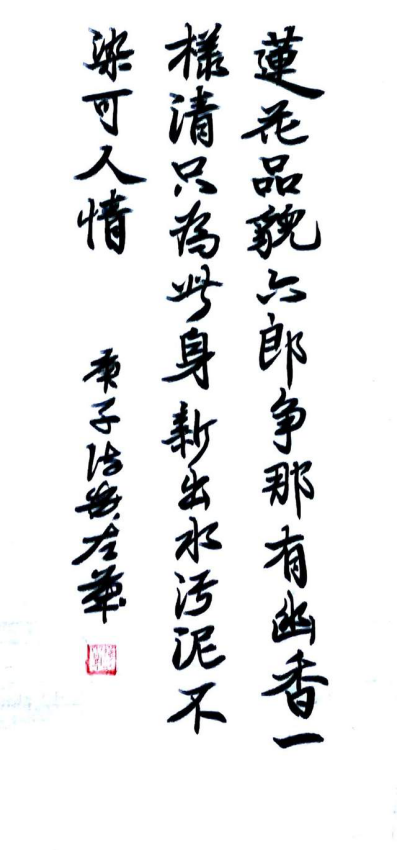 蓮花品貌六郎争那有幽香一
様清只為此身新出水污泥不
染可人情
庚子